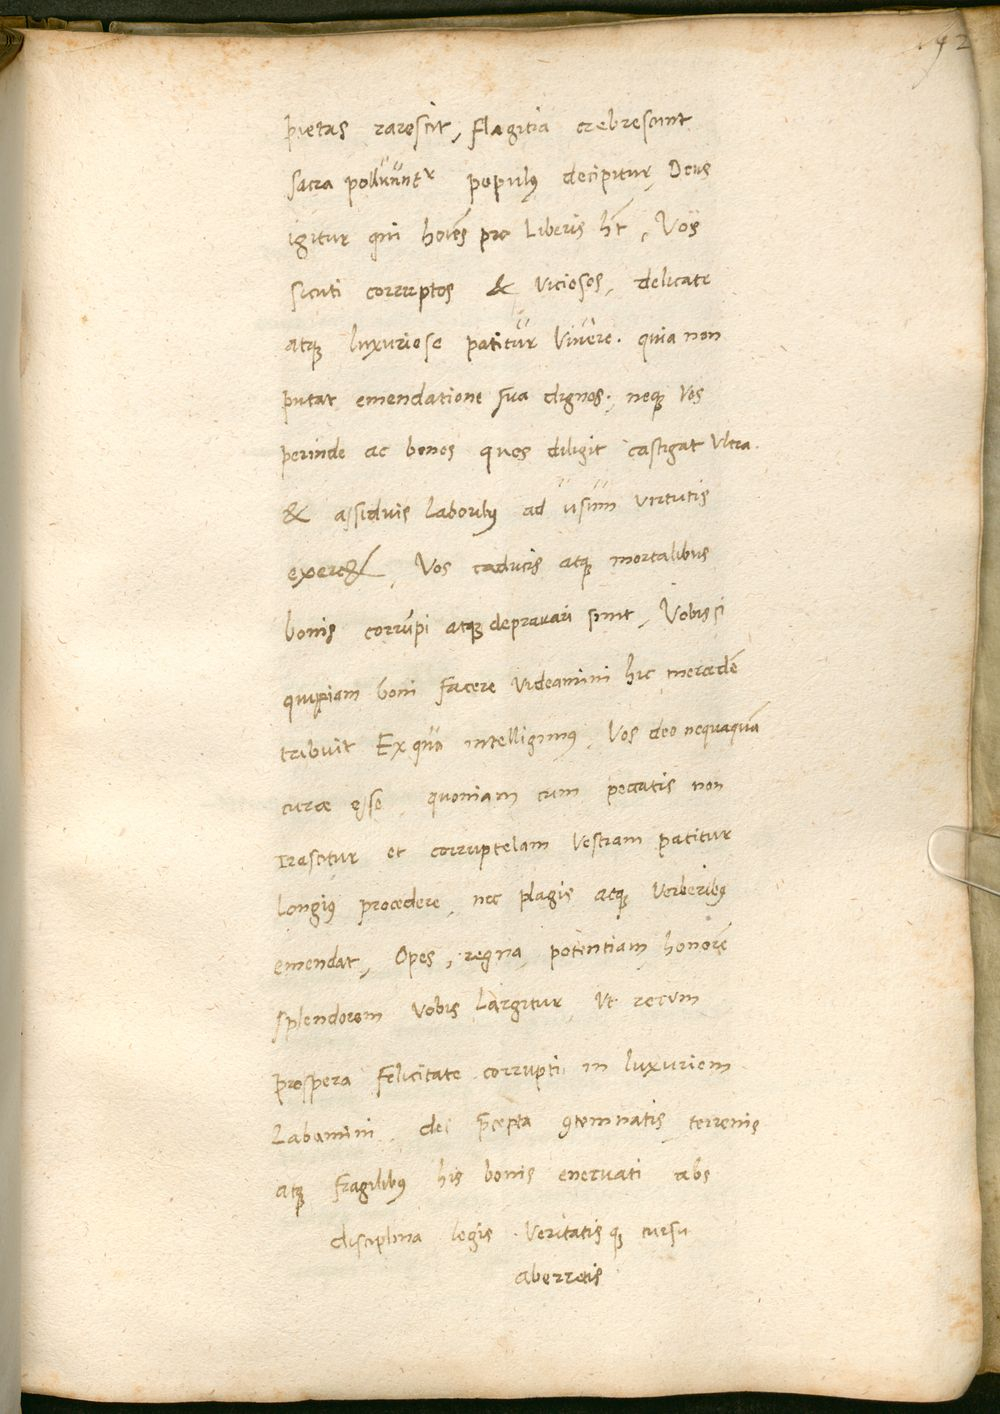 42
pietas rarescit, flagitia crebrescunt
sacra polluuntr populꝰ decipitur, Deus
igitur qui hoiēs pro Liberis hēt, Vos
sicuti corruptos & viciosos, delicate
atqꝫ luxuriose patitur vivere. quia non
putat emendatione sua dignos; neqꝫ vos
perinde ac bonos quos diligit castigat ultra.
& assiduis laboribꝰ ad usum virtutis
exerc&, Vos caducis atqꝫ mortalibus
bonis corrūpi atqꝫ depravari sinit, Vobis si
quippiam boni facere videamini hic mercedē
tribuit Ex quo intelligimꝰ, Vos deo nequaquā
curae esse, quoniam cum peccatis non
irascitur et corruptelam vestram patitur
longiꝰ procedere, nec plagis atqꝫ verberibꝰ
emendat, Opes, regna, potentiam, honorē
splendorem vobis largitur, ut rerum
prospera felicitate corrupti in luxuriem
Labamini, dei p̄cepta ꝯtemnatis terrenis
atqꝫ fragilibꝰ his bonis enervati abs
disciplina legis Veritatis qꝫ cursu
aberretis